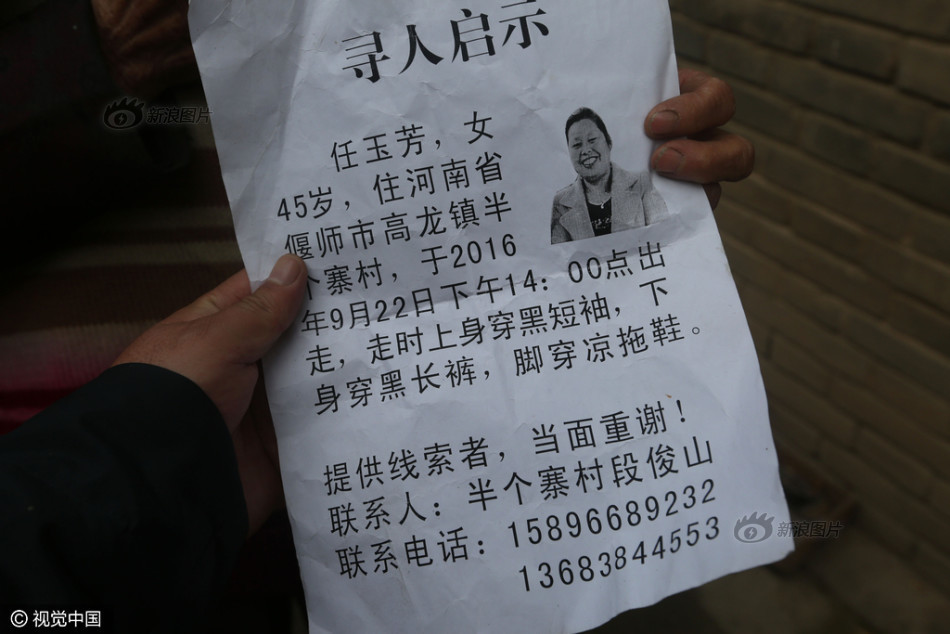 寻人启示
任玉芳，女
45岁，住河南省
偃师市高龙镇半
个寨村，于2016
年9月22日下午14：00点出
走，走时上身穿黑短袖，下
身穿黑长裤，脚穿凉拖鞋。
提供线索者，当面重谢！
联系人：半个寨村段俊山
联系电话：15896689232
13683844553
新浪图片
新浪图片
© 视觉中国